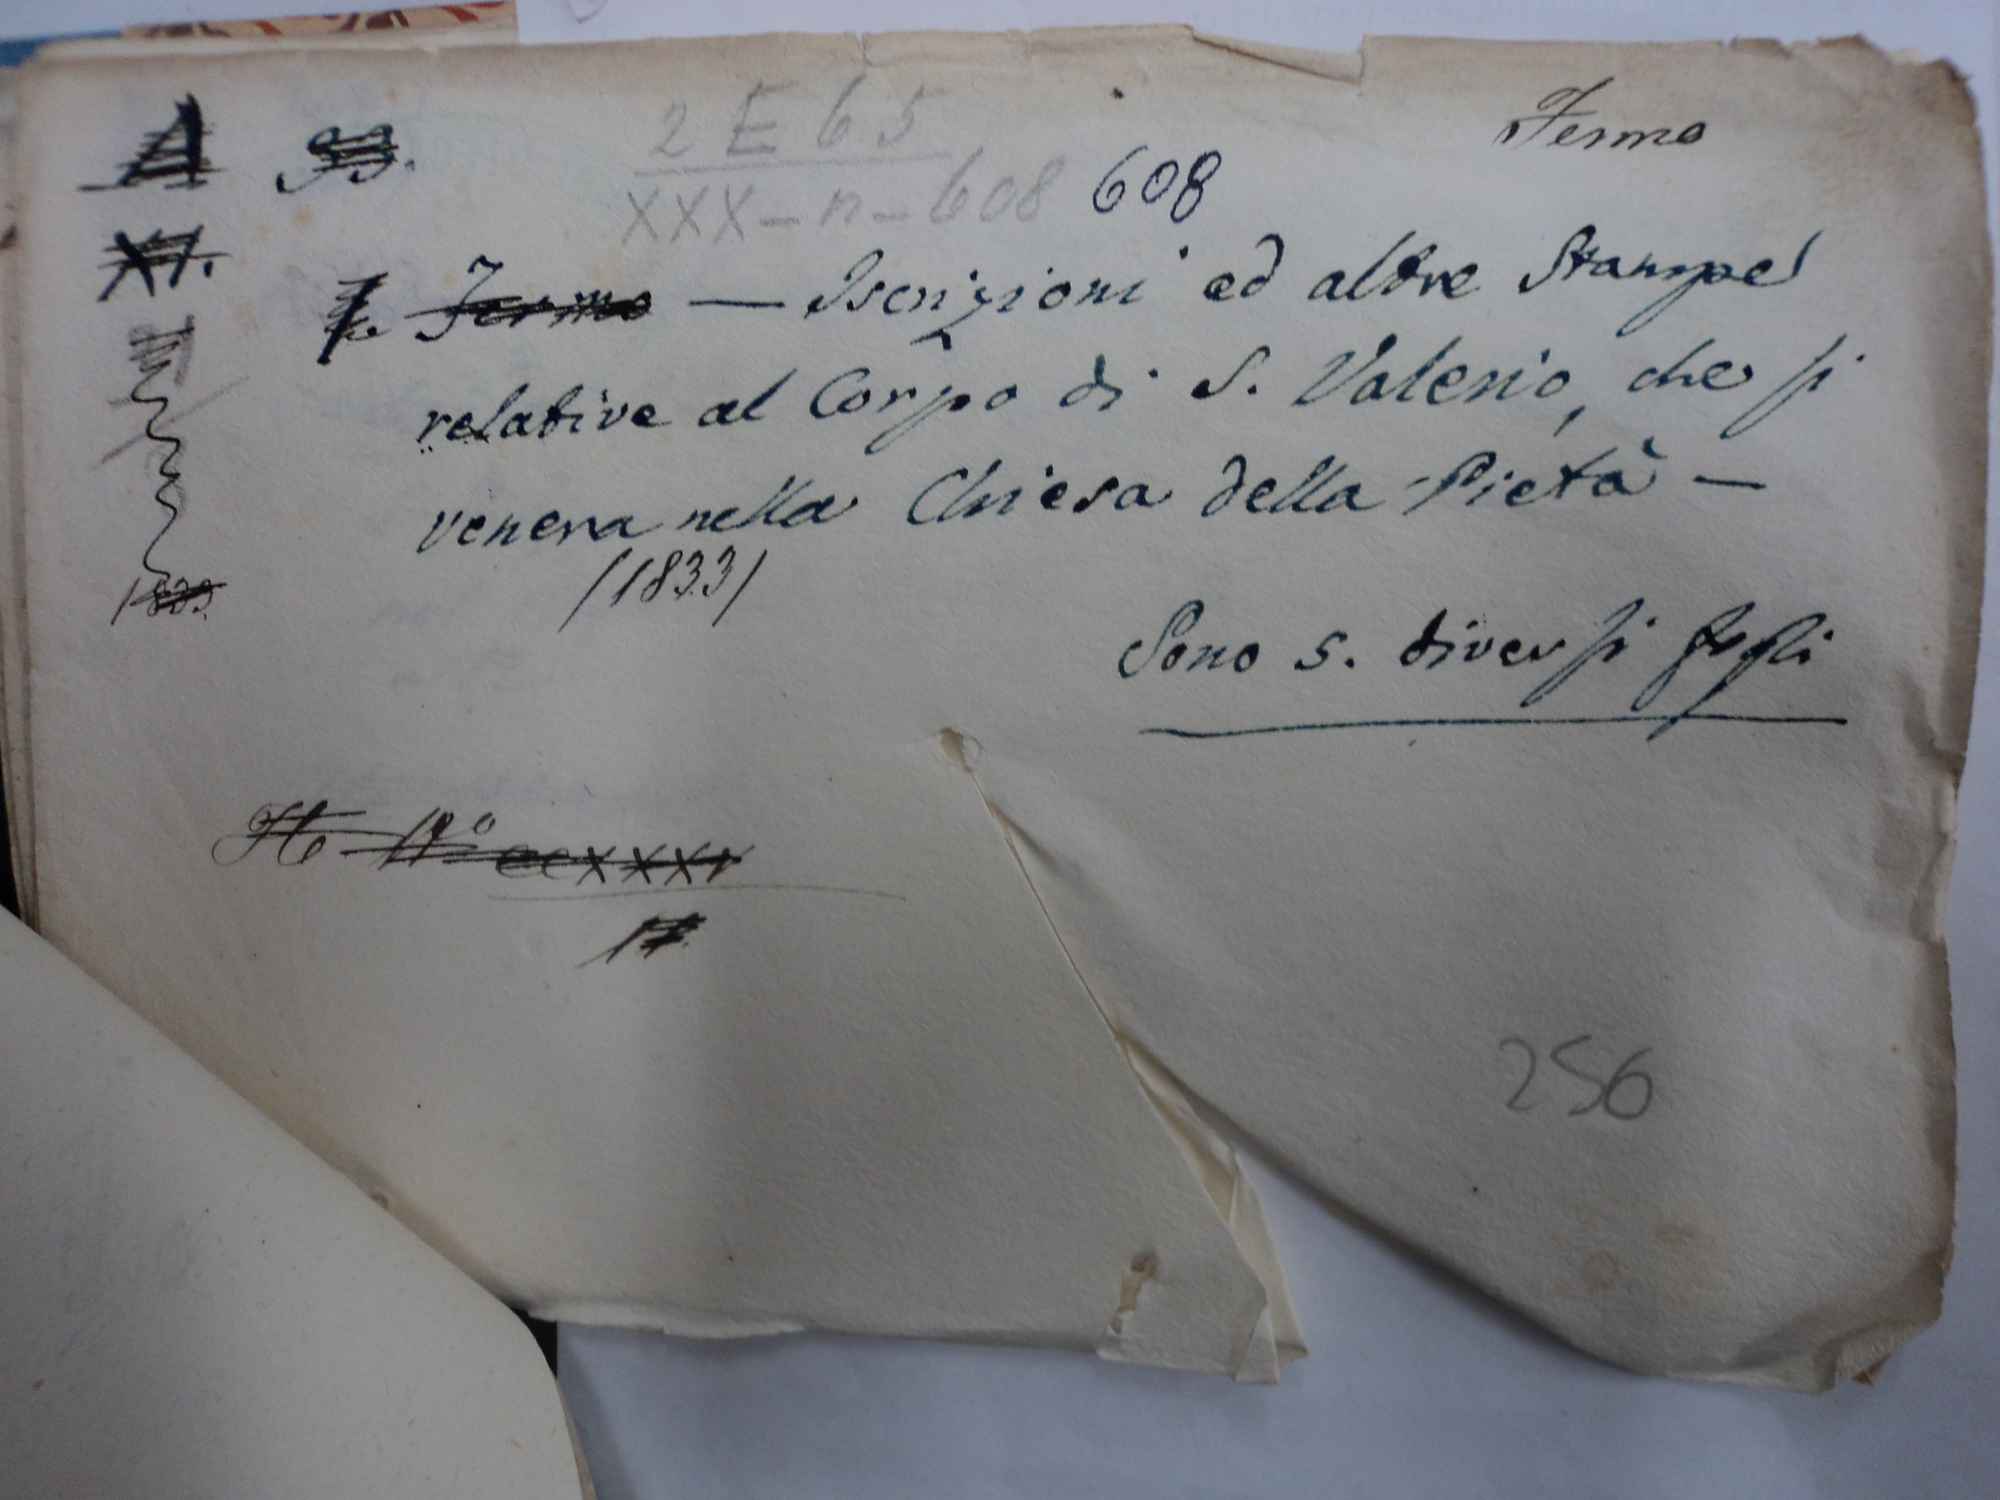 A 93.
2 E 65
XXX - n - 608 608
Fermo
XI.
Fermo — Iscrizioni ed altre Stampe
relative al Corpo di S. Valerio, che si
venera nella Chiesa della Pietà —
(1833)
1833.
Sono 5. diversi fogli
N°
256